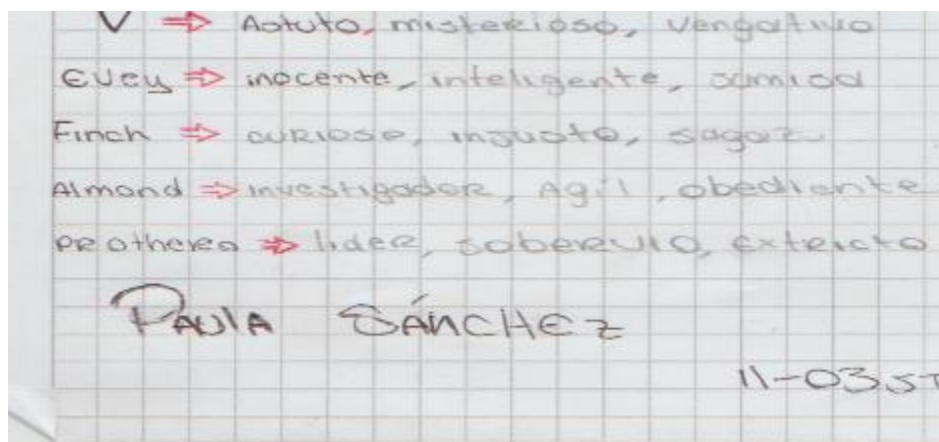 V ⇒ Astuto, misterioso, vengativo
Evey ⇒ inocente, inteligente, sumisa
Finch ⇒ curioso, injusto, sagaz
Almond ⇒ investigador, Agil, obediente
PRotheros ⇒ lider, soberuio, extricto
PAUlA SÁNCHEZ
11-03 JT